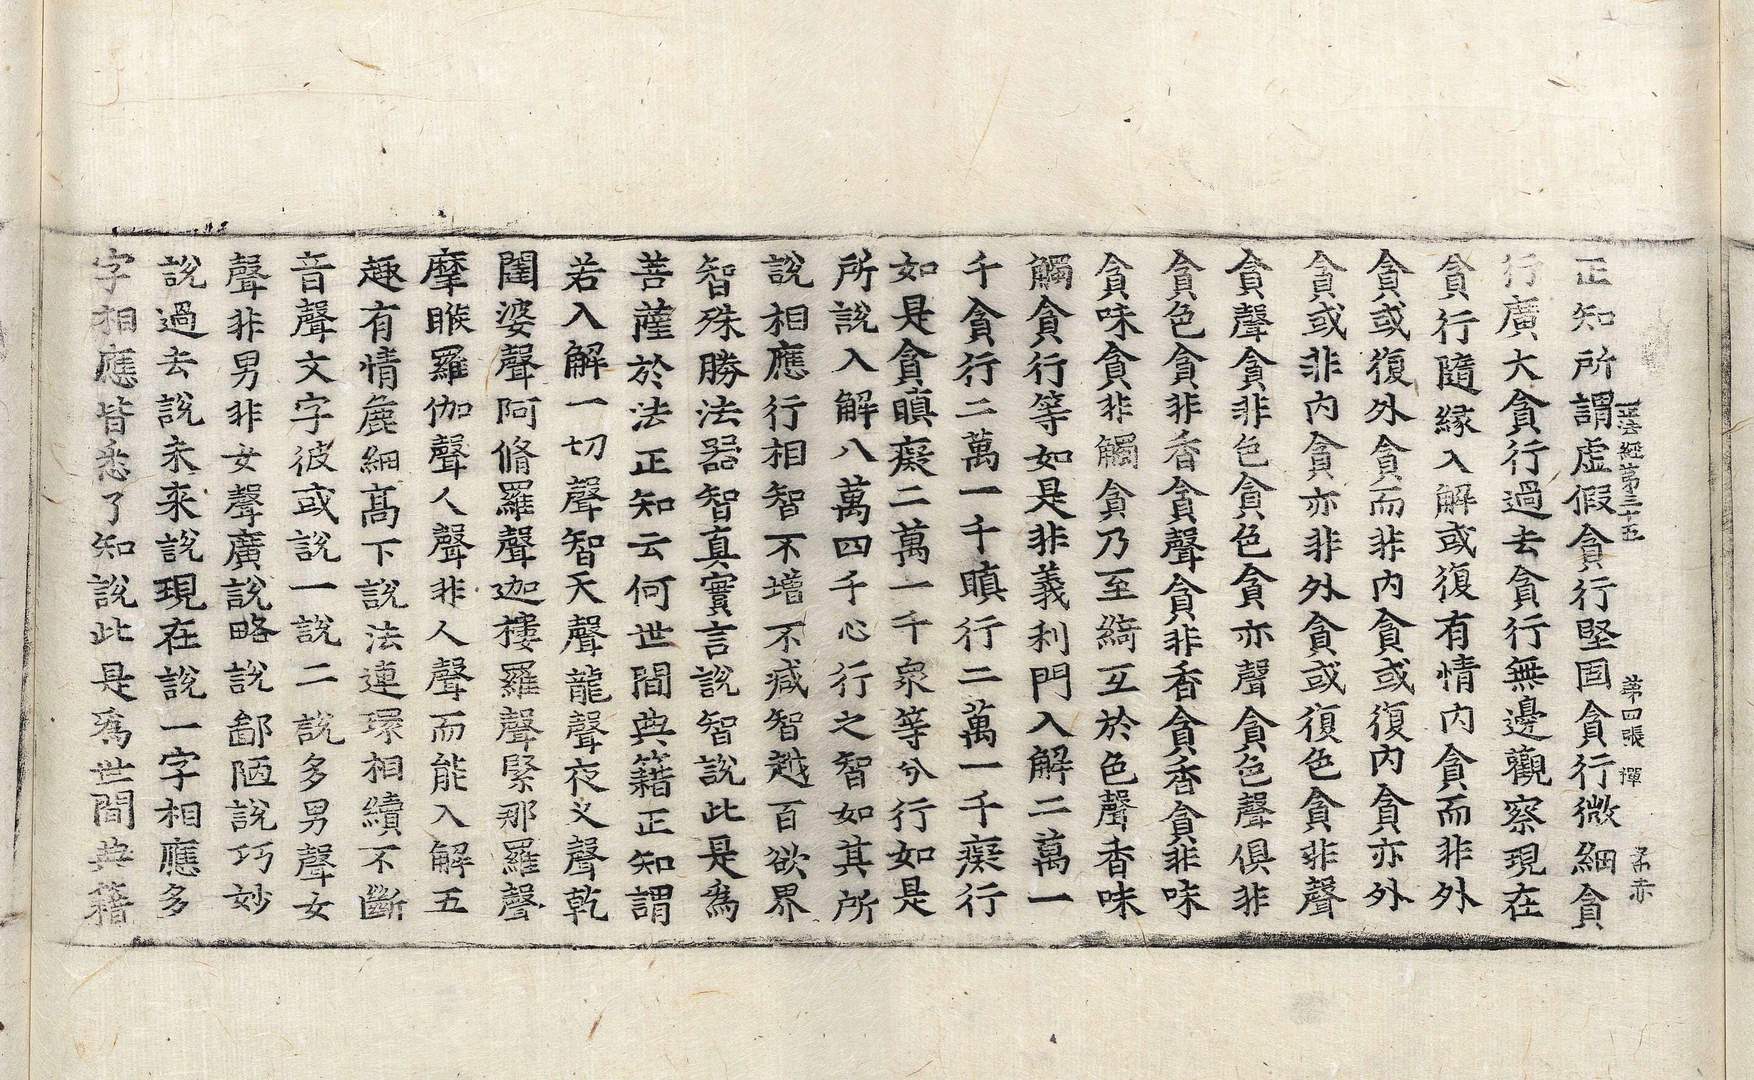 正知所謂虛假貪行堅固貪行微細貪
行廣大貪行過去貪行無邊觀察現在
貪行隨緣入解或復有情內貪而非外
貪或復外貪而非內貪或復內貪亦外
貪或非內貪亦非外貪或復色貪非聲
貪聲貪非色貪色貪亦聲貪色聲俱非
貪色貪非香貪聲貪非香貪香貪非味
貪味貪非觸貪乃至綺互於色聲香味
觸貪行等如是非義利門入解二萬一
千貪行二萬一千瞋行二萬一千癡行
如是貪瞋癡二萬一千衆等分行如是
所說入解八萬四千心行之智如其所
說相應行相智不增不減智越百欲界
智殊勝法器智真實言說智說此是爲
菩薩於法正知云何世間典籍正知謂
若入解一切聲智天聲龍聲夜叉聲乾
闥婆聲阿脩羅聲迦樓羅聲緊那羅聲
摩睺羅伽聲人聲非人聲而能入解五
趣有情麁細高下說法連環相續不斷
音聲文字彼或說一說二說多男聲女
聲非男非女聲廣說略說鄙陋說巧妙
說過去說未來說現在說一字相應多
字相應皆悉了知說此是爲世間典籍
正法經第三十五 第四張 禪